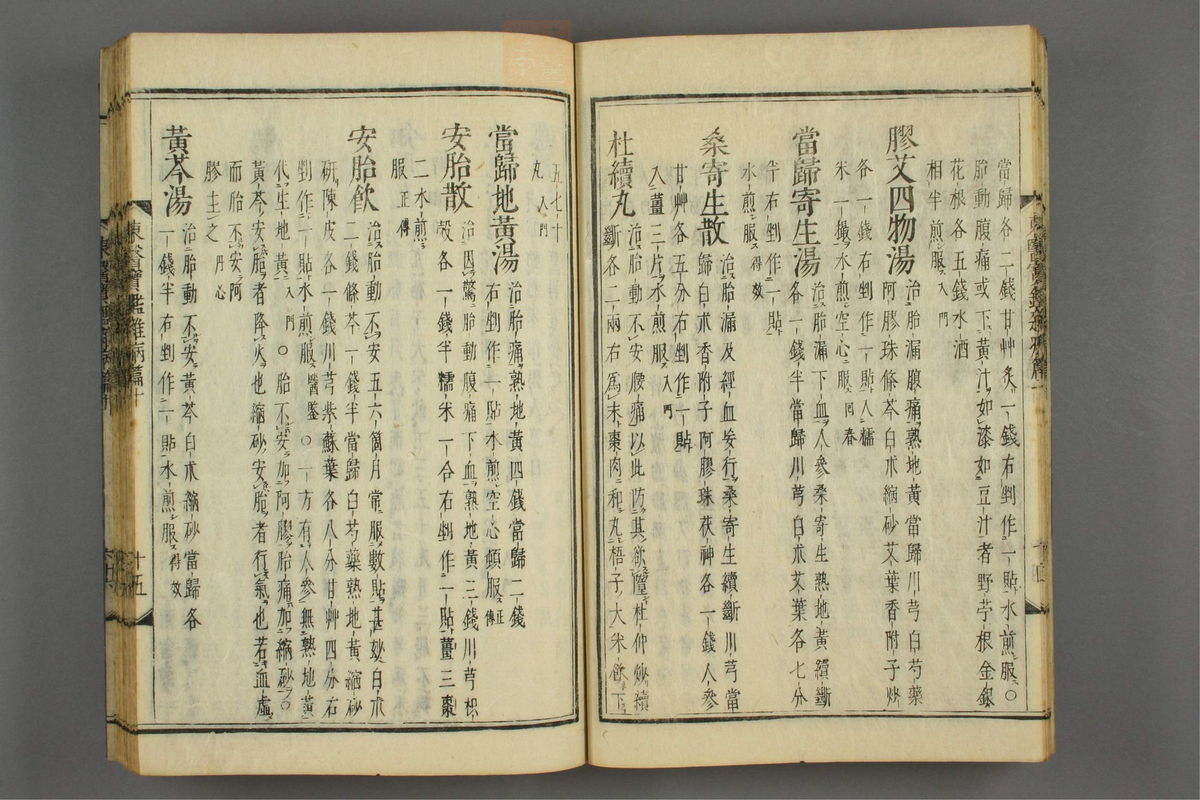 當歸各二錢甘艸炙一錢右剉作一貼水煎服〇
胎動腹痛或下黃汁如漆如豆汁者野苧根金銀
花根各五錢水酒
相半煎服入門
膠艾四物湯 治胎漏腹痛熟地黃當歸川芎白芍藥
阿膠珠條芩白朮縮砂艾葉香附子炒
各一錢右剉作一貼入糯
米一撮水煎空心服回春
當歸寄生湯 治胎漏下血人參桑寄生熟地黃續斷
各一錢半當歸川芎白朮艾葉各七分
半右剉作一貼
水煎服得效
桑寄生散 治胎漏及經血妄行桑寄生續斷川芎當
歸白朮香附子阿膠珠茯神各一錢人參
甘艸各五分右剉作一貼
入薑三片水煎服入門
杜續丸 治胎動不安腰痛以此防其欲墮杜仲炒續
斷各二兩右爲末棗肉和丸梧子大米飮下
五七十
丸入門
當歸地黃湯 治胎痛熟地黃四錢當歸二錢
右剉作一貼水煎空心頓服正傳
安胎散 治因驚胎動腹痛下血熟地黃三錢川芎枳
殼各一錢半糯米一合右剉作一貼薑三棗
二水煎
服正傳
安胎飮 治胎動不安五六箇月常服數貼甚妙白朮
二錢條芩一錢半當歸白芍藥熟地黃縮砂
硏陳皮各一錢川芎紫蘇葉各八分甘艸四分右
剉作一貼水煎服醫鑒〇一方有人參無熟地黃
代生地黃入門〇胎不安加阿膠胎痛加縮砂〇
黃芩安胎者降火也縮砂安胎者行氣也若血虛
而胎不安阿
膠主之丹心
黃芩湯 治胎動不安黃芩白朮縮砂當歸各
一錢半右剉作一貼水煎服得效
東醫寶鑑雜病篇十
十五